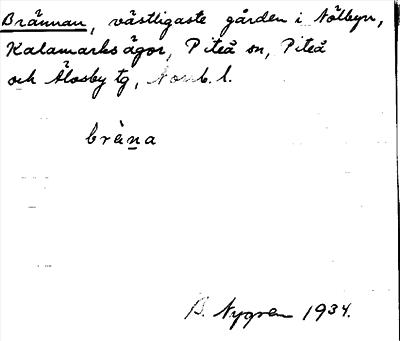 Brännan, västligaste gården i Nölbyn,
Kalamarks ägor, Piteå sn, Piteå
och Älvsby tg, Norrb. l.
bràṉa
B. Nygren 1934.